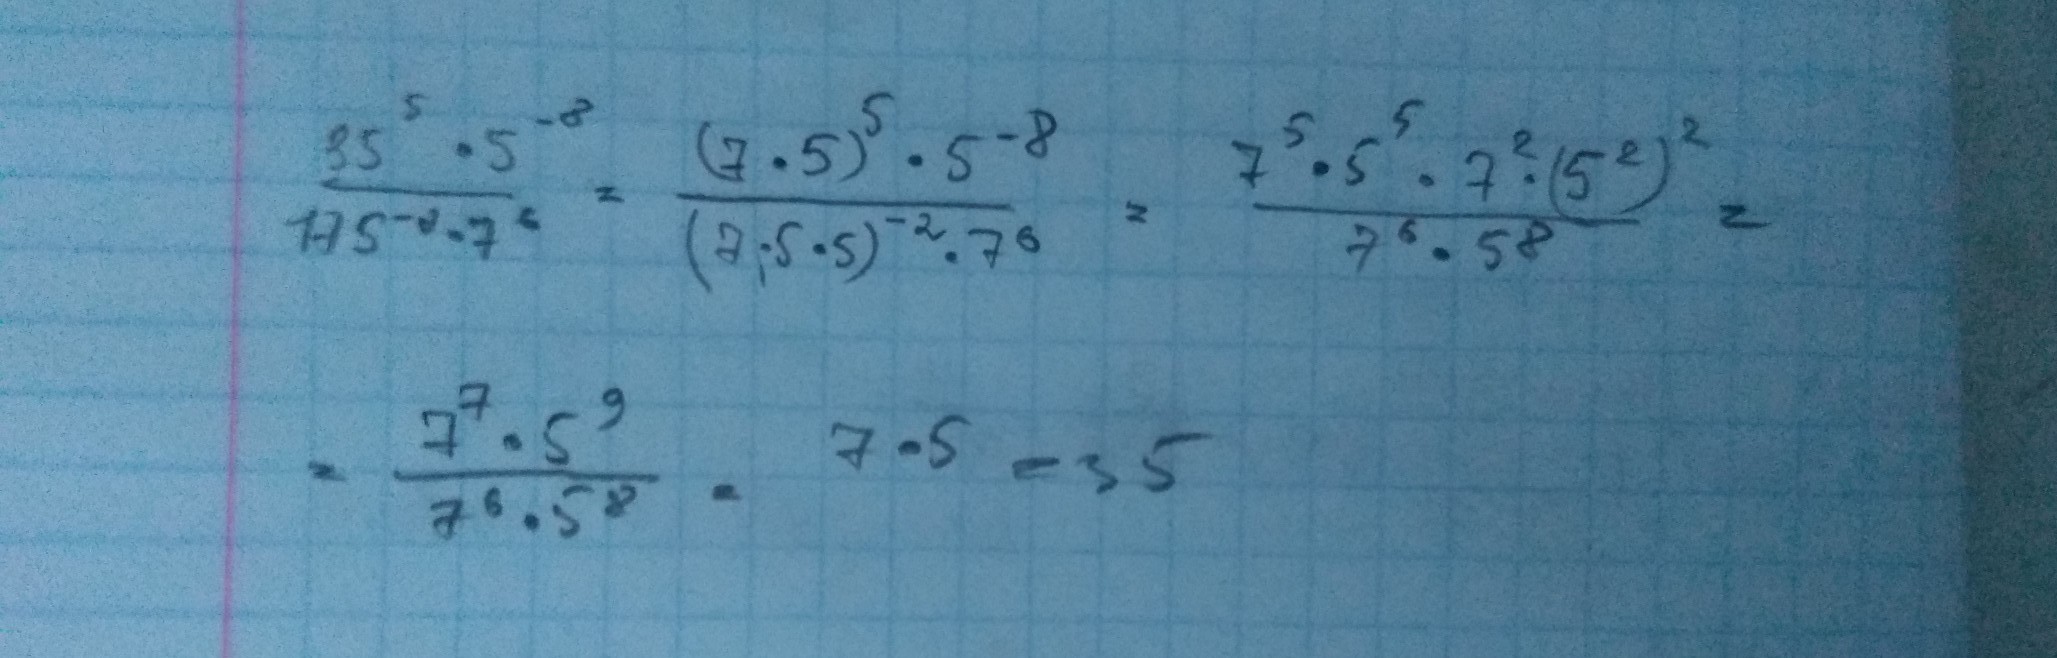 35⁵ · 5⁻⁸ / 175⁻² · 7⁶ = (7 · 5)⁵ · 5⁻⁸ / (7 · 5 · 5)⁻² · 7⁶ = 7⁵ · 5⁵ · 7² · (5²)² / 7⁶ · 5⁸ =
= 7⁷ · 5⁹ / 7⁶ · 5⁸ = 7 · 5 = 35